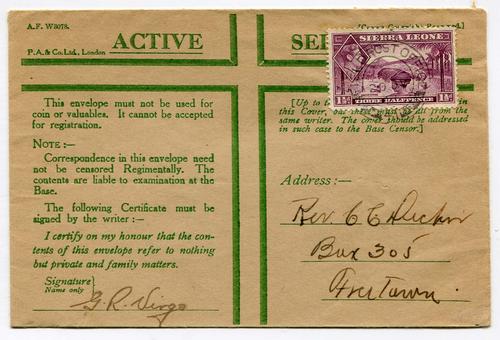 A.F. W3078.
P.A. & Co. Ltd., London
ACTIVE
This envelope must not be used for
coin or valuables. It cannot be accepted
for registration.
NOTE:—
Correspondence in this envelope need
not be censored Regimentally. The
contents are liable to examination at the
Base.
The following Certificate must be
signed by the writer:—
I certify on my honour that the con-
tents of this envelope refer to nothing
but private and family matters.
Signature
Name only
G. R. Virgo
SIERRA LEONE
POST OFFICE
1½d
THREE HALFPENCE
1½d
[Up to in
this Cover, but must all from the
same writer. The cover should be addressed
in such case to the Base Censor.]
Address:—
Rev. C E
Box 305
Freetown.